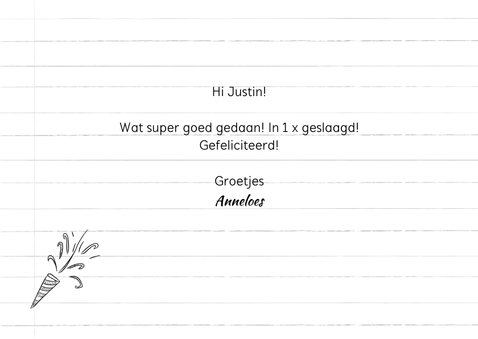 Hi Justin!
Wat super goed gedaan! In 1 x geslaagd!
Gefeliciteerd!
Groetjes
Anneloes